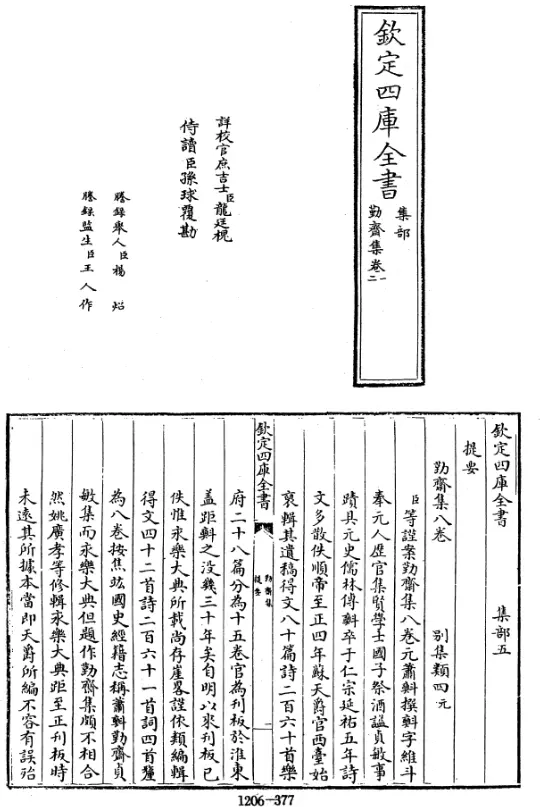 欽定四庫全書
集部
勤齋集卷一二
詳校官庶吉士臣龍廷槐
侍讀臣孫球覆勘
謄錄舉人臣楊炤
謄錄監生臣王人作
欽定四庫全書 集部五
提要
勤齋集八卷 別集類四元
臣等謹案勤齋集八卷元蕭㪺撰㪺字維斗
奉元人歷官集賢學士國子祭酒諡貞敏事
蹟具元史儒林傳㪺卒于仁宗延祐五年詩
文多散佚順帝至正四年蘇天爵官西臺始
裒輯其遺稿得文八十篇詩二百六十首樂
欽定四庫全書
勤齋集
提要
一
府二十八篇分為十五卷官為刋板於淮東
蓋距㪺之没幾三十年矣自明以來刋板已
佚惟永樂大典所載尚存崖畧謹依類編輯
得文四十二首詩二百六十一首詞四首釐
為八卷按焦竑國史經籍志稱蕭㪺勤齋貞
敏集而永樂大典但題作勤齋集頗不相合
然姚廣孝等修輯永樂大典距至正刋板時
未遠其所據本當即天爵所編不容有誤殆
1206-377